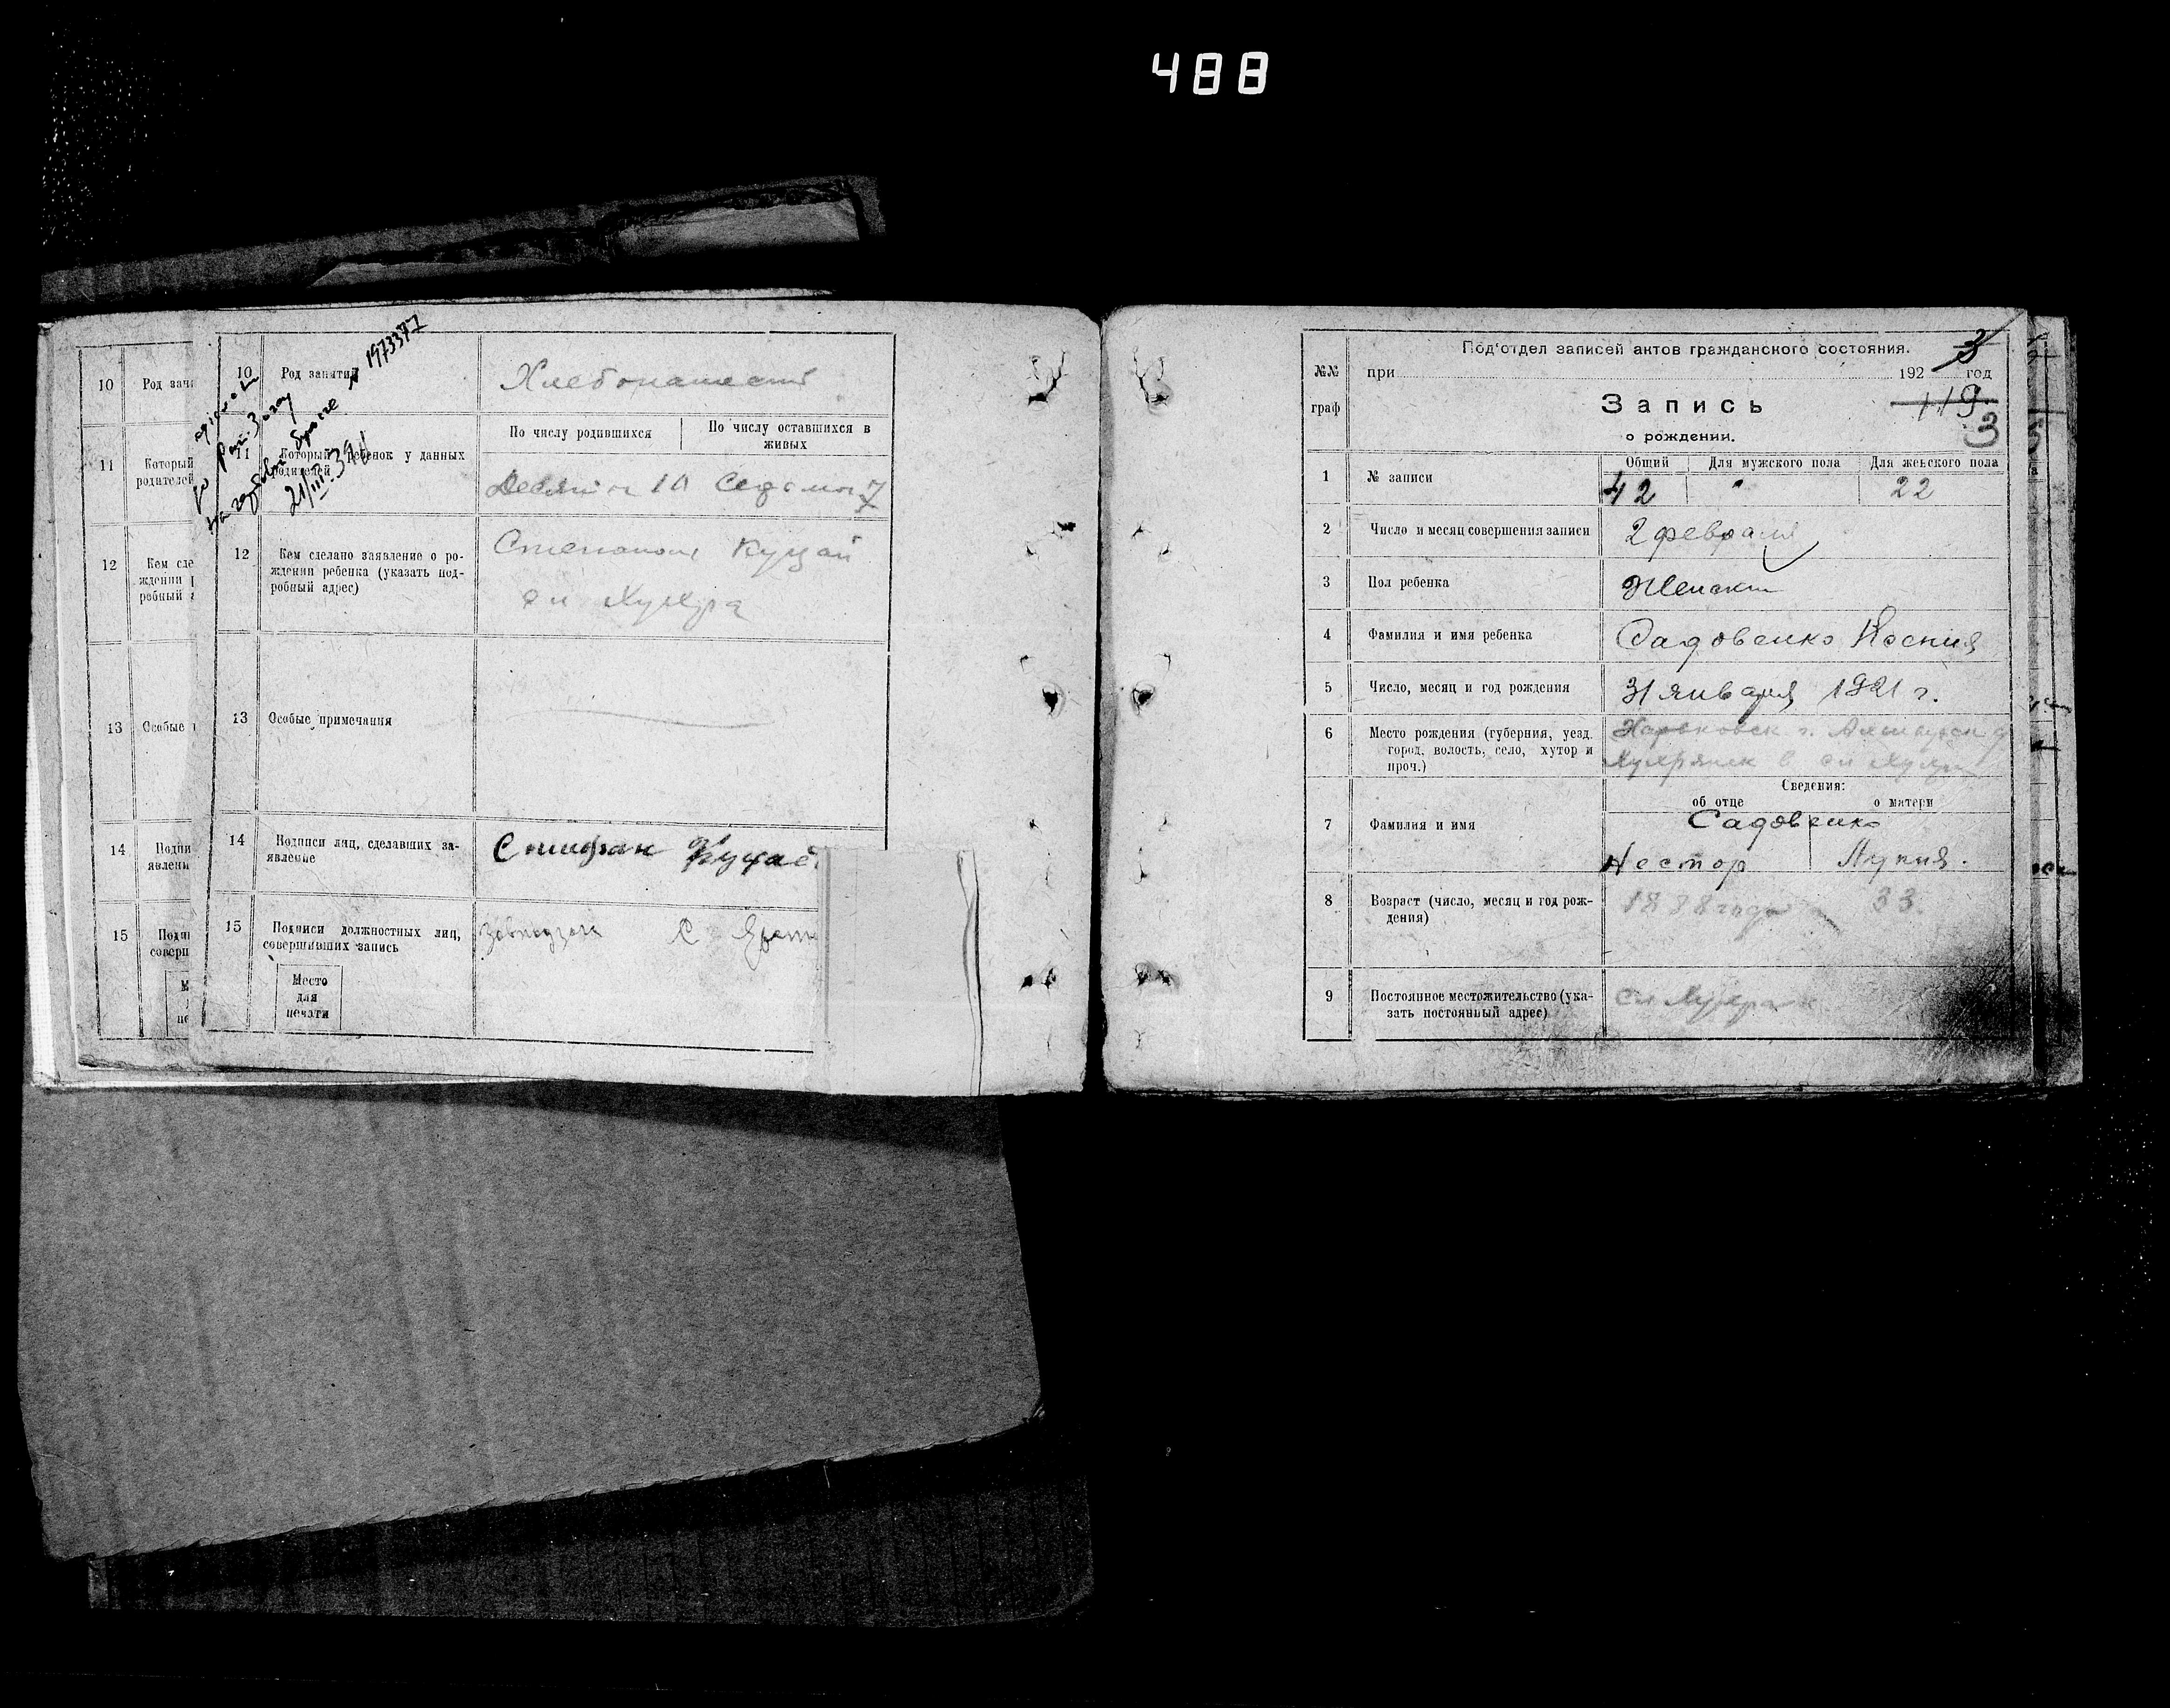 488
10
Род зан
11
Который
родителей
12
Кем сде
ждении
робный а
13
Особые
14
Подпи
явлени
15
Подпи
соверш
10
Род занятий
Хлебопашест
№ 1973377
21/III 39
11
Который ребенок у данных
родителей
По числу родившихся
По числу оставшихся в
живых
10 Седьмой 7
12
Кем сделано заявление о ро-
ждении ребенка (указать под-
робный адрес)
Степаном Куцай
13
Особые примечания
14
Подписи лиц, сделавших за-
явление
15
Подписи должностных лиц,
совершивших запись
Место
для
печати
Под'отдел записей актов гражданского состояния.
3
№№
граф
при
192
год
Запись
119
о рождении.
3
1
№ записи
Общий
Для мужского пола
Для женского пола
42
22
2
Число и месяц совершения записи
2 февраля
3
Пол ребенка
Женски
4
Фамилия и имя ребенка
Садовенко Ксения
5
Число, месяц и год рождения
31 января 1921 г.
6
Место рождения (губерния, уезд,
город, волость, село, хутор и
проч.)
Харьковск г.
7
Фамилия и имя
Сведения:
об отце
о матери
Садовенко
Нестор
8
Возраст (число, месяц и год рож-
дения)
1888 года
33.
9
Постоянное местожительство (ука-
зать постоянный адрес)